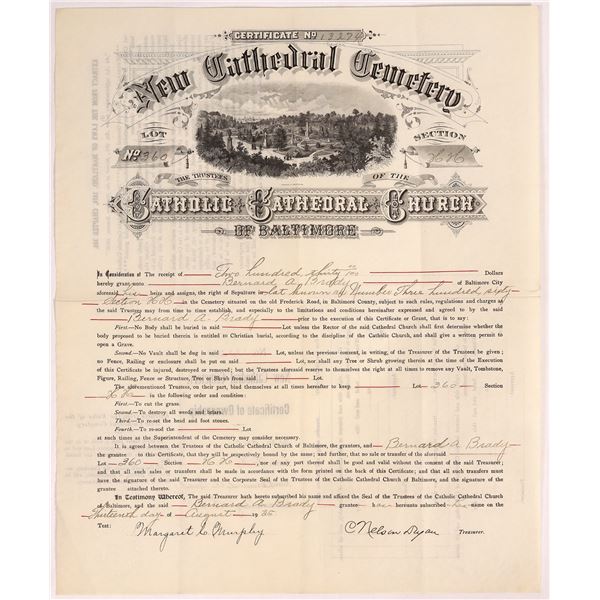 CERTIFICATE No 13274
New Cathedral Cemetery
LOT
SECTION
No 360
THE TRUSTEES OF THE
CATHOLIC CATHEDRAL CHURCH
OF BALTIMORE
In Consideration of The receipt of Two hundred thirty 00/100 Dollars
hereby grant unto Bernard A. Brady of Baltimore City
aforesaid his heirs and assigns, the right of Sepulture in lot known as Number Three hundred sixty
Section in the Cemetery situated on the old Frederick Road, in Baltimore County, subject to such rules, regulations and charges as
the said Trustees may from time to time establish, and especially to the limitations and conditions hereinafter expressed and agreed to by the said
Bernard A. Brady prior to the execution of this Certificate or Grant, that is to say:
First.—No Body shall be buried in said Lot unless the Rector of the said Cathedral Church shall first determine whether the
body proposed to be buried therein is entitled to Christian burial, according to the discipline of the Catholic Church, and shall give a written permit to
open a Grave.
Second.—No Vault shall be dug in said Lot, unless the previous consent, in writing, of the Treasurer of the Trustees be given;
no Fence, Railing or enclosure be put on said Lot, nor shall any Tree or Shrub growing therein at the time of the Execution
of this Certificate be injured, destroyed or removed; but the Trustees aforesaid reserve to themselves the right at all times to remove any Vault, Tombstone,
Figure, Railing, Fence or Structure, Tree or Shrub from said Lot.
The aforementioned Trustees, on their part, bind themselves at all times hereafter to keep Lot 360 Section
in the following order and condition:
First—To cut the grass.
Second—To destroy all weeds and briars.
Third—To re-set the head and foot stones.
Fourth—To re-sod the Lot
at such times as the Superintendent of the Cemetery may consider necessary.
It is agreed between the Trustees of the Catholic Cathedral Church of Baltimore, the grantors, and Bernard A. Brady
the grantee to this Certificate, that they will be respectively bound by the same; and further, that no sale or transfer of the aforesaid
Lot 360 Section , nor of any part thereof shall be good and valid without the consent of the said Treasurer; and
that all such sales or transfers shall be made in accordance with the form printed on the back of this Certificate; and that all such transfers must
have the signature of the said Treasurer and the Corporate Seal of the Trustees of the Catholic Cathedral Church of Baltimore, and the signature of the
grantee attached thereto.
In Testimony Whereof, The said Treasurer hath hereto subscribed his name and affixed the Seal of the Trustees of the Catholic Cathedral Church
of Baltimore, and the said Bernard A. Brady grantee has hereunto subscribed his name on the
thirteenth day of August 1935
Test:
Margaret C. Murphy
C Nelson Ryan Treasurer.